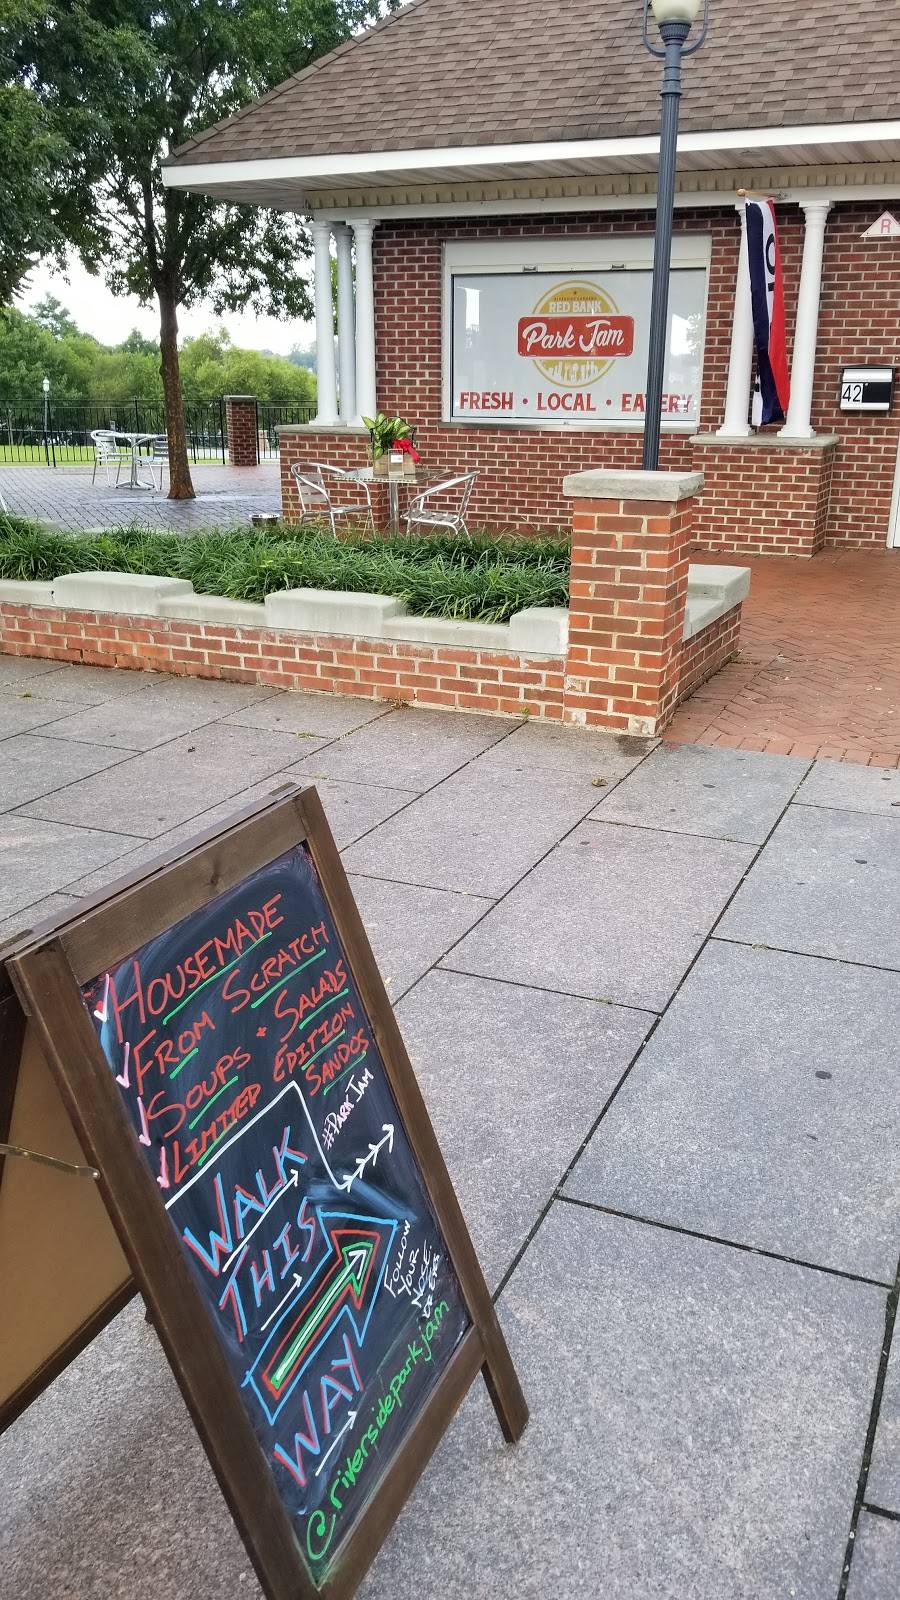 RIVERSIDE GARDENS
RED BANK
Park Jam
FRESH • LOCAL • EATERY
O
R
42
HOUSEMADE
FROM SCRATCH
SOUPS + SALADS
LIMITED EDITION
SANDOS
#PARKJAM
WALK
THIS
WAY
FOLLOW
YOUR
NOSE.
OR EYES
@riversideparkjam